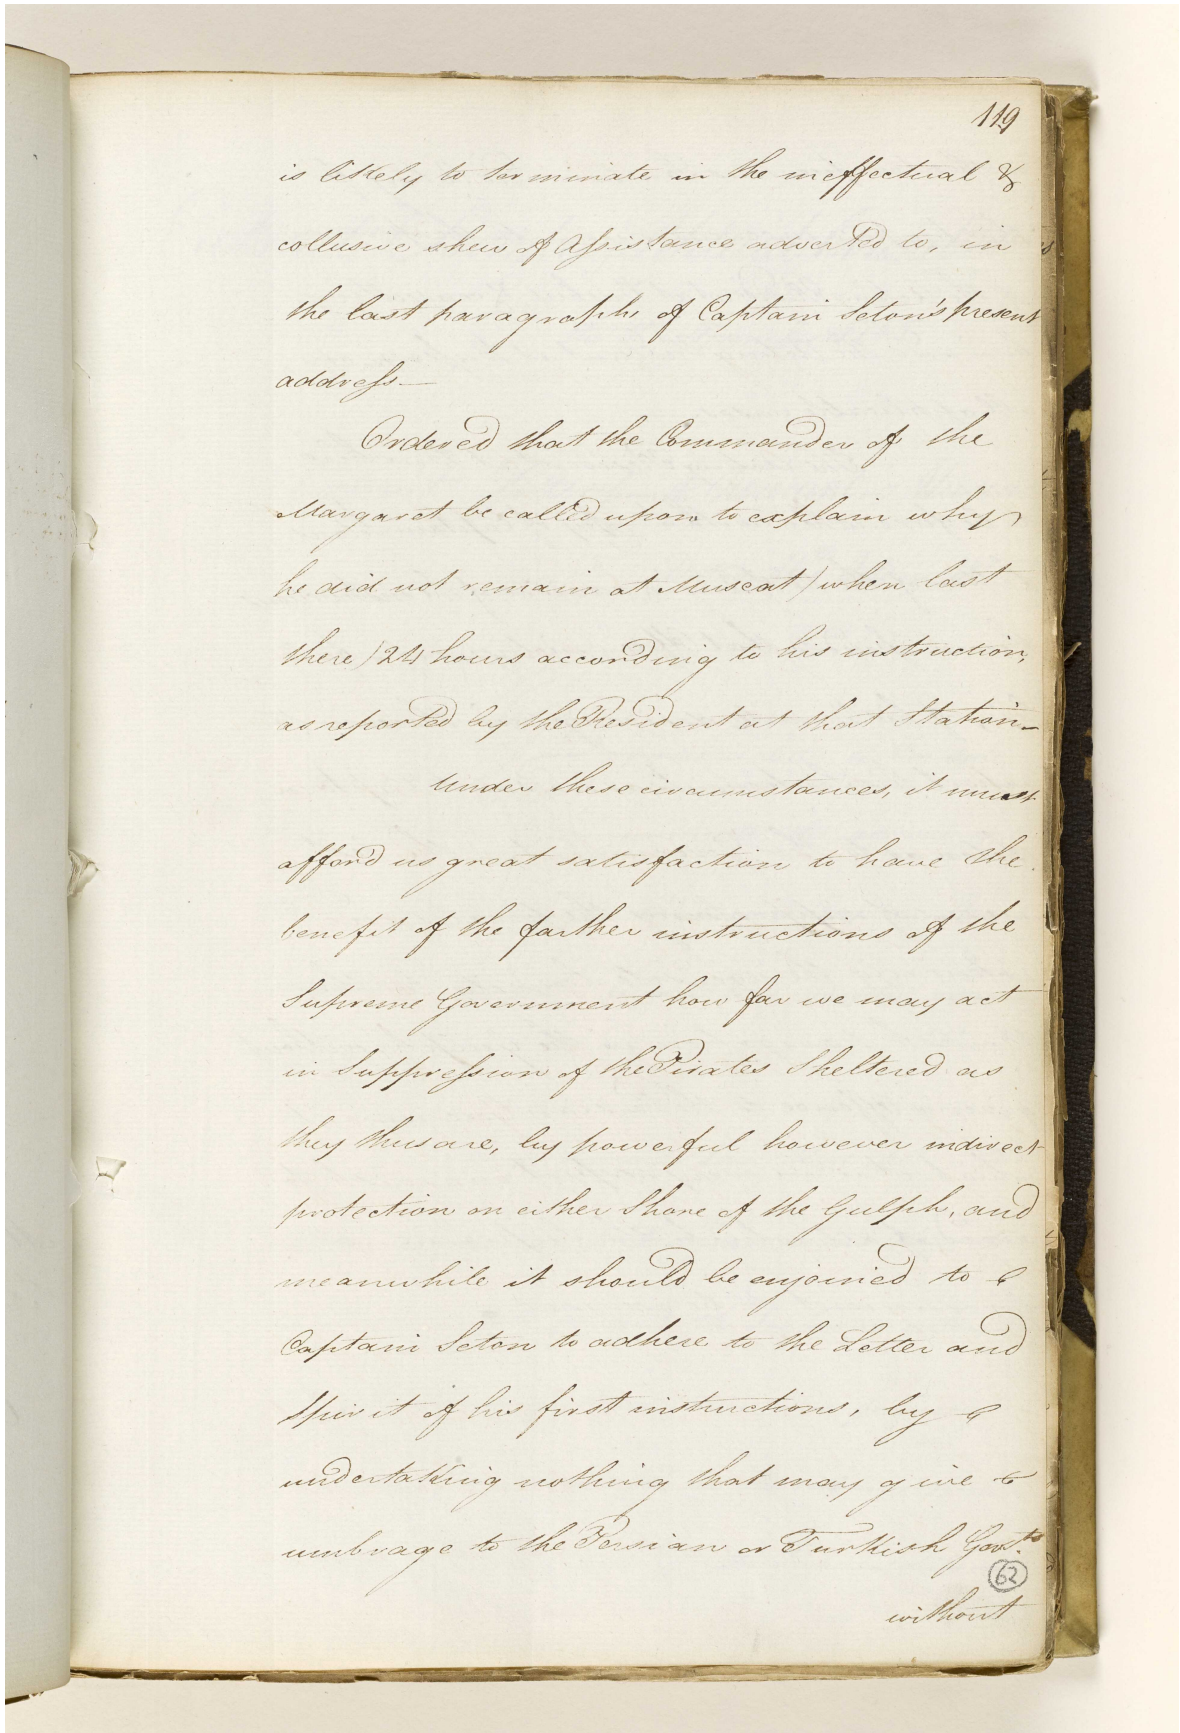 119
is likely to terminate in the ineffectual &
collusive shew of Assistance adverted to, in
the last paragraph, of Captain Seton's present
address—
Ordered that the Commander of the
Margaret be called upon to explain why
he did not remain at Muscat / when last
there / 24 hours according to his instruction,
as reported by the Resident at that Station—
Under these circumstances, it must
afford us great satisfaction to have the
benefit of the farther instructions of the
Supreme Government how far we may act
in Suppression of the Pirates Sheltered as
they thus are, by powerful however indirect
protection on either Shore of the Gulph, and
meanwhile it should be enjoined to
Captain Seton to adhere to the Letter and
Spirit of his first instructions, by
undertaking nothing that may give
umbrage to the Persian or Turkish Govts.
62
without